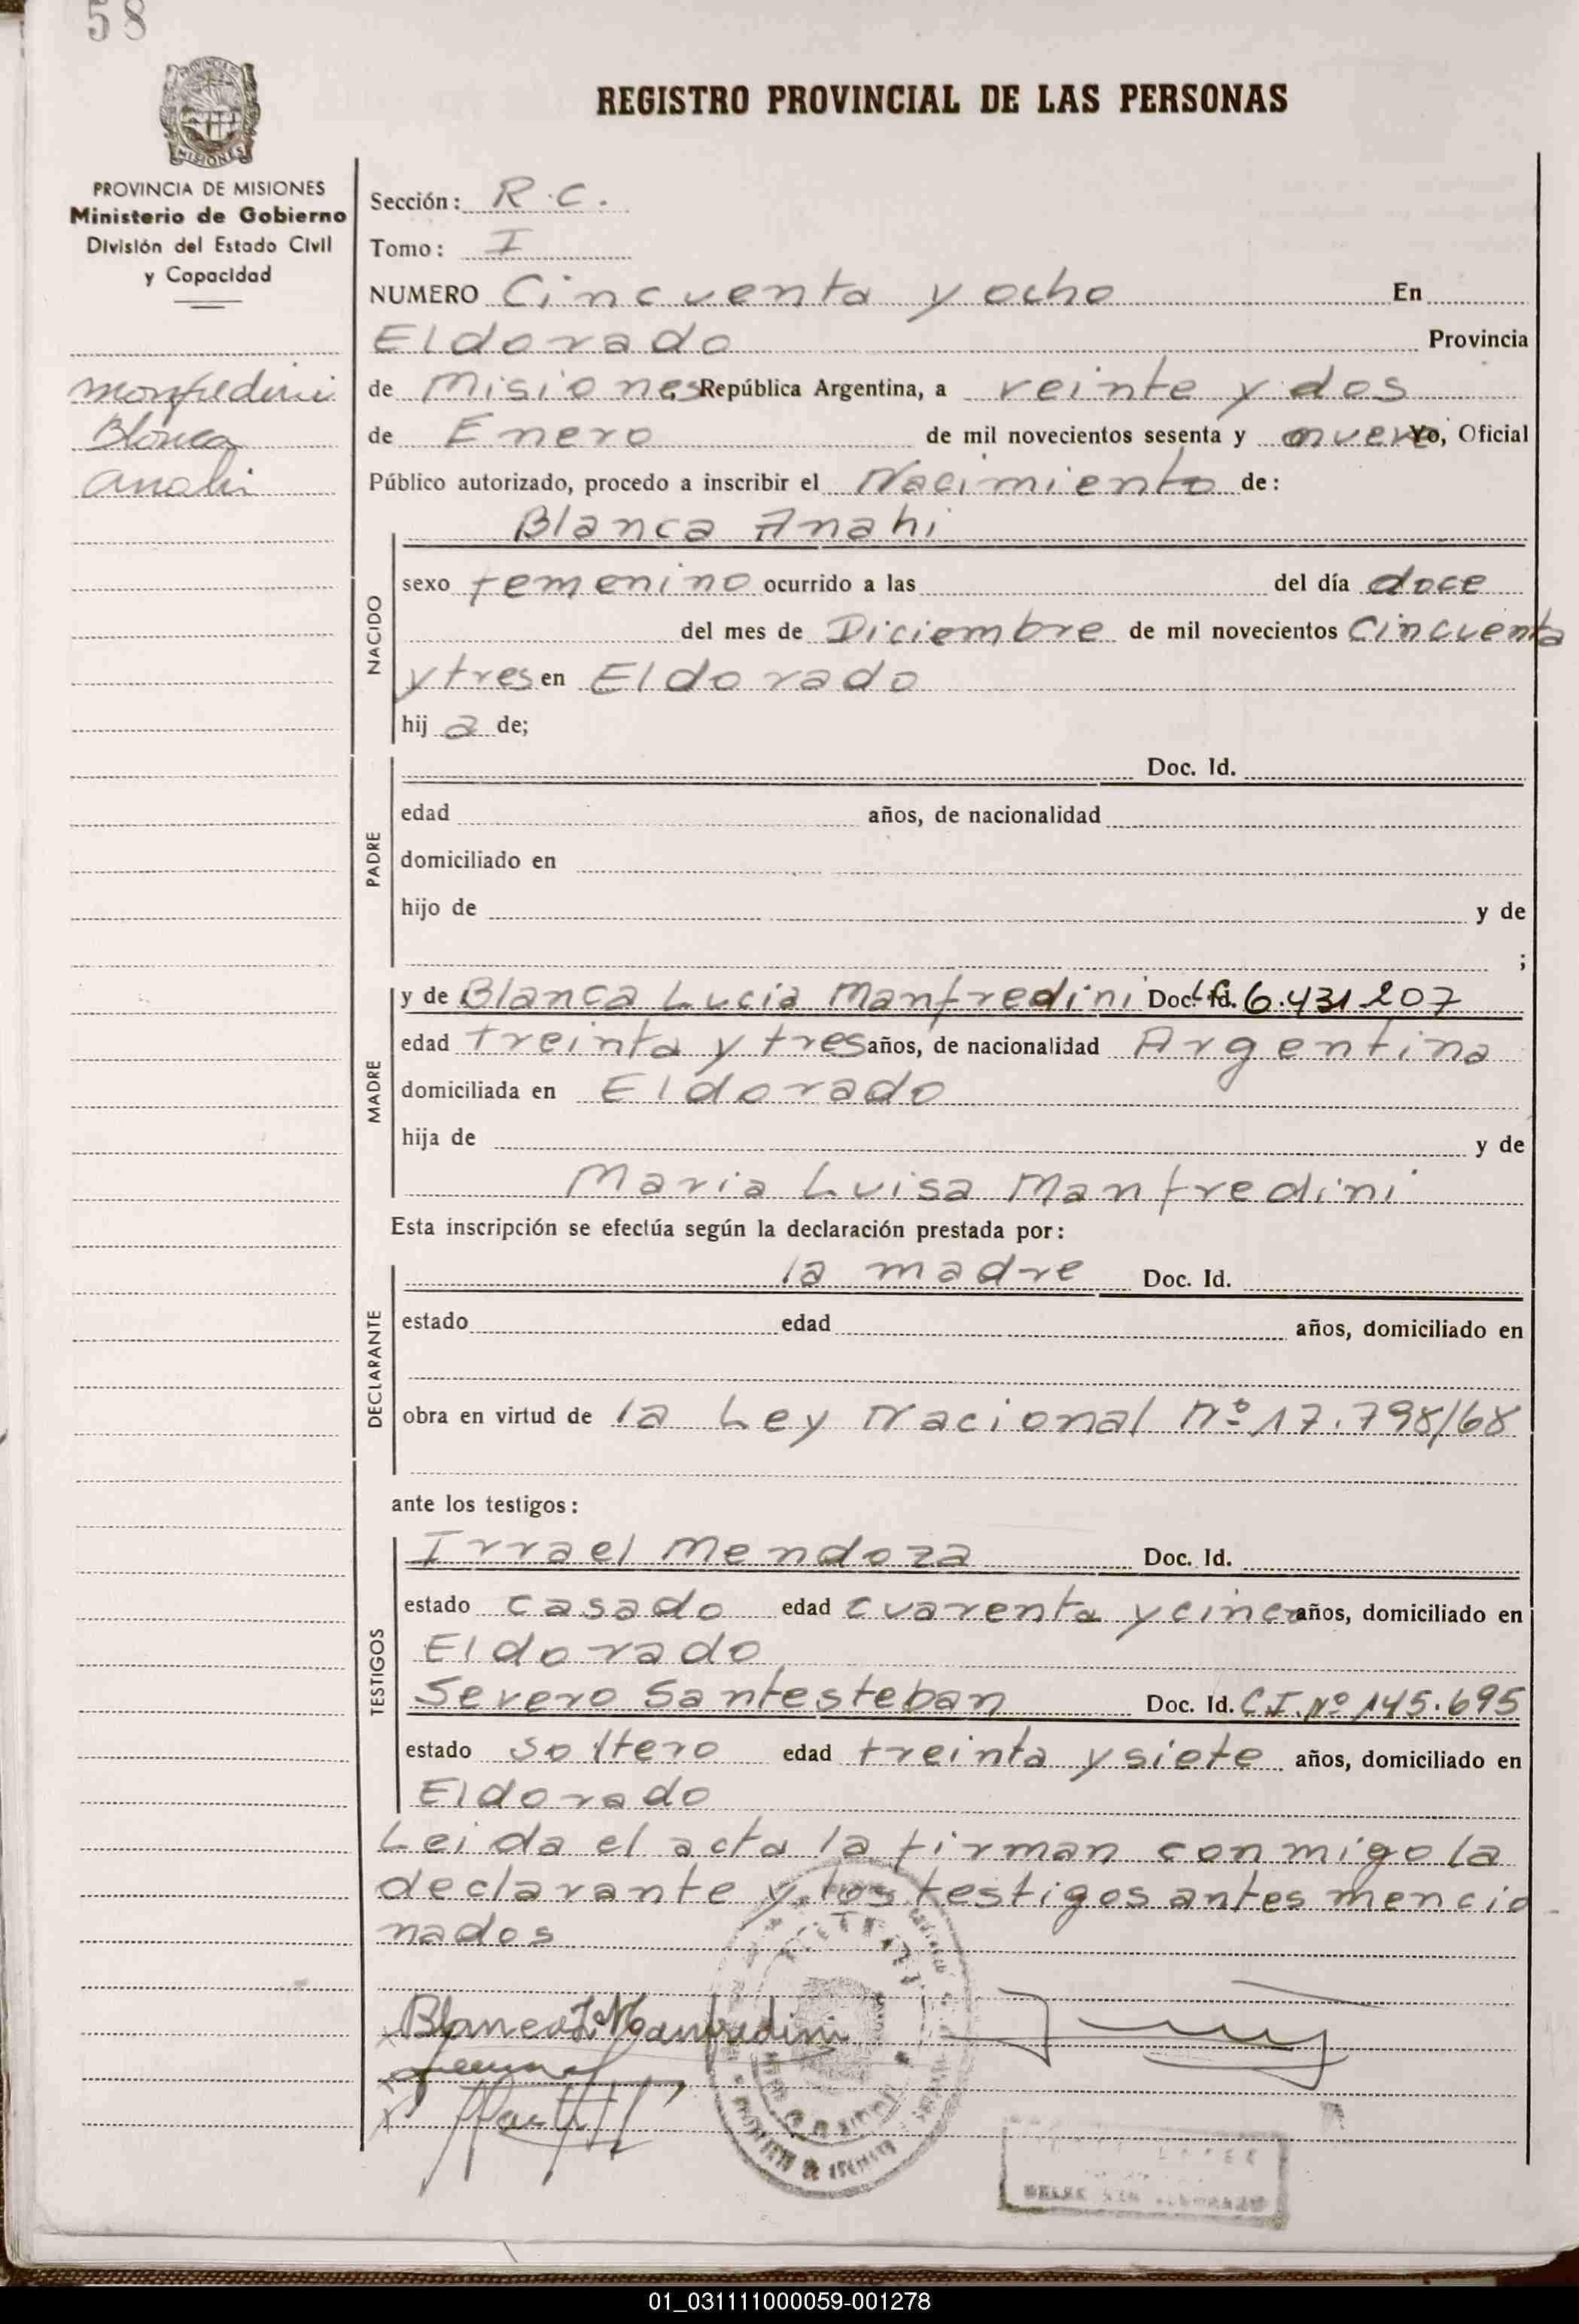 58
PROVINCIA DE MISIONES
Ministerio de Gobierno
División del Estado Civil
y Capacidad
Manfredini
Blanca
Anahi
REGISTRO PROVINCIAL DE LAS PERSONAS
Sección: R.C.
Tomo: I
NUMERO Cincuenta y ocho En
Eldorado Provincia
de Misiones República Argentina, a veinte y dos
de Enero de mil novecientos sesenta y nueve Yo, Oficial
Público autorizado, procedo a inscribir el Nacimiento de:
Blanca Anahi
NACIDO
sexo femenino ocurrido a las del día doce
del mes de Diciembre de mil novecientos Cincuenta
y tres en Eldorado
hij a de;
PADRE
Doc. Id.
edad años, de nacionalidad
domiciliado en
hijo de y de
;
MADRE
y de Blanca Lucia Manfredini Doc. Id. 6.431.207
edad treinta y tres años, de nacionalidad Argentina
domiciliada en Eldorado
hija de y de
Maria Luisa Manfredini
Esta inscripción se efectúa según la declaración prestada por:
DECLARANTE
la madre Doc. Id.
estado edad años, domiciliado en
obra en virtud de la Ley Nacional Nº 17.798/68
ante los testigos:
TESTIGOS
Irrael Mendoza Doc. Id.
estado casado edad cuarenta y cinco años, domiciliado en
Eldorado
Severo Santesteban Doc. Id. C.I. Nº 145.695
estado soltero edad treinta y siete años, domiciliado en
Eldorado
Leida el acta la firman conmigo la
declarante y los testigos antes mencio
nados
Blanca L. Manfredini
01_031111000059-001278